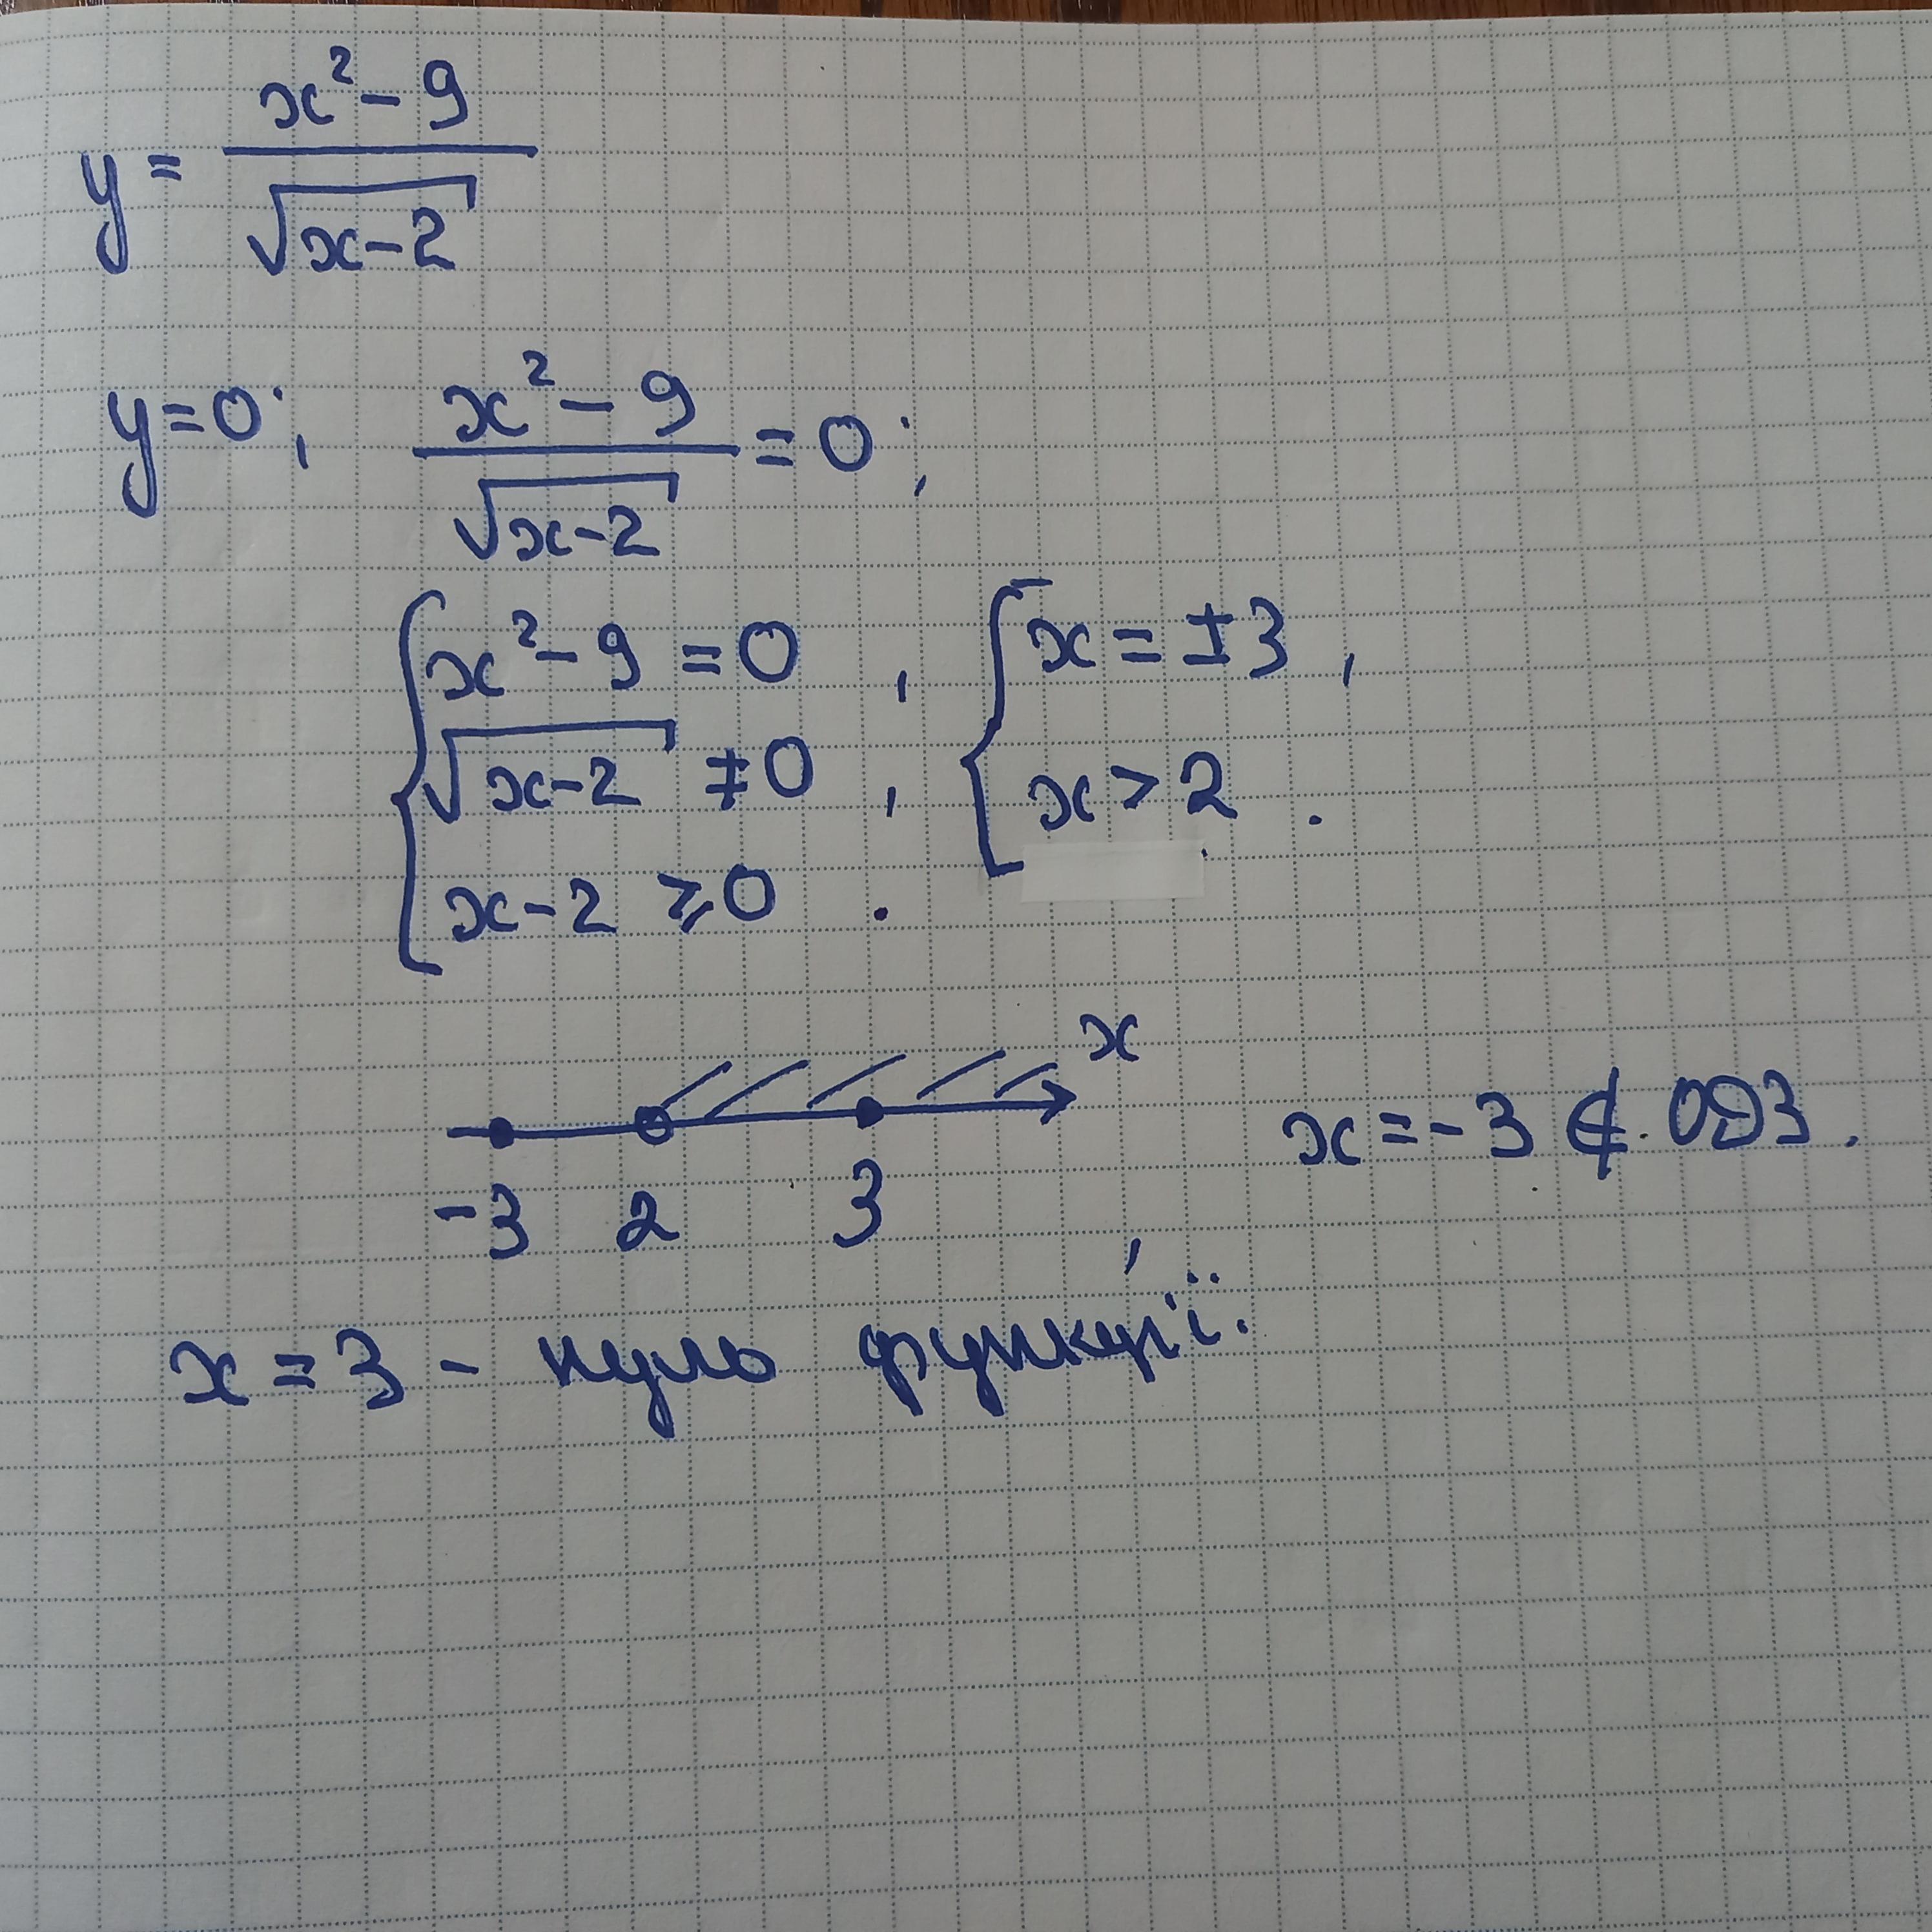 y = (x² - 9) / √(x-2)
y=0; (x² - 9) / √(x-2) = 0;
{ x² - 9 = 0, { x = ±3,
√(x-2) ≠ 0, x > 2.
x-2 ≥ 0.
x
-3 2 3
x = -3 ∉ ОДЗ.
x = 3 - нуль функції.